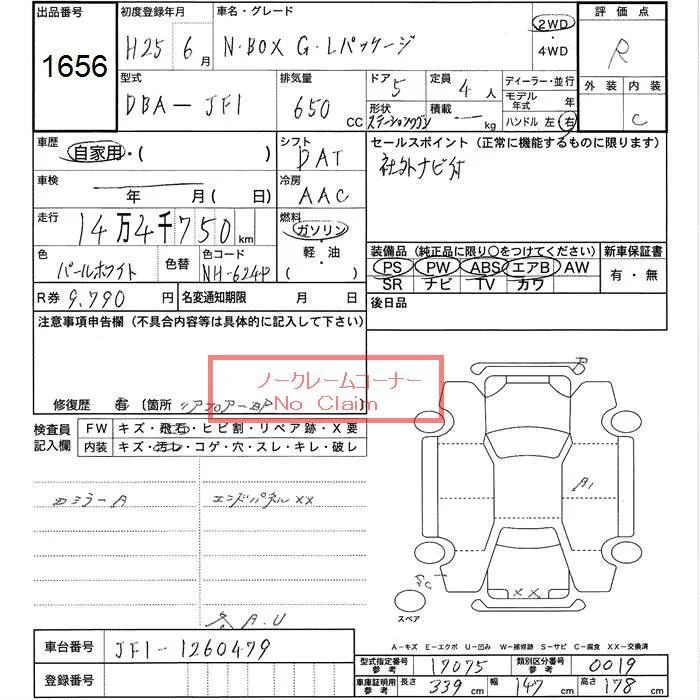 出品番号
1656
初度登録年月
H25 6月
車名・グレード
N-BOX G・Lパッケージ
2WD
・
4WD
評価点
R
外装 内装
C
型式
DBA-JF1
排気量
650 CC
ドア 5
形状 ステーションワゴン
定員 4人
積載 ー kg
ディーラー・並行
モデル年式 年
ハンドル 左・右
車歴
自家用・( )
シフト
DAT
セールスポイント (正常に機能するものに限ります)
社外ナビ付
車検
年 月 (日)
冷房
AAC
走行
14万4千750 km
燃料
ガソリン
・
軽・油
・
( )
色
パールホワイト
色替
色コード
NH-624P
装備品 (純正品に限り○をつけてください)
PS PW ABS エアB AW
SR ナビ TV カワ
新車保証書
有・無
R券 9,790 円
名変通知期限 月 日
後日品
注意事項申告欄 (不具合内容等は具体的に記入して下さい)
ノークレームコーナー
No Claim
修復歴 有 〔箇所 リアフロアー-BP
検査員記入欄
FW キズ・飛石・ヒビ割・リペア跡・X要
内装 キズ・汚レ・コゲ・穴・スレ・キレ・破レ
ミラーA
エンドパネルXX
A.U
A1
XX
スペア
A-キズ E-エクボ U-凹み W-補修跡 S-サビ C-腐食 XX-交換済
車台番号 JF1-1260479
登録番号
型式指定番号 参考 17075
類別区分番号 参考 0019
車庫証明用 参考 長さ 339 cm 幅 147 cm 高さ 178 cm